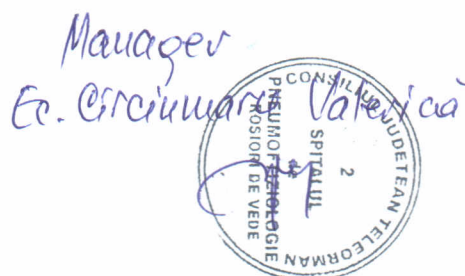 Manager
Ec. Circiumaru Valerică
CONSILIUL JUDETEAN TELEORMAN
2
SPITALUL
de
PNEUMOFTIZIOLOGIE
ROSIORI DE VEDE